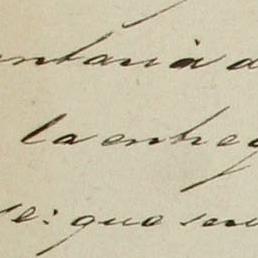 ntaria d
la entreg
se: que seu